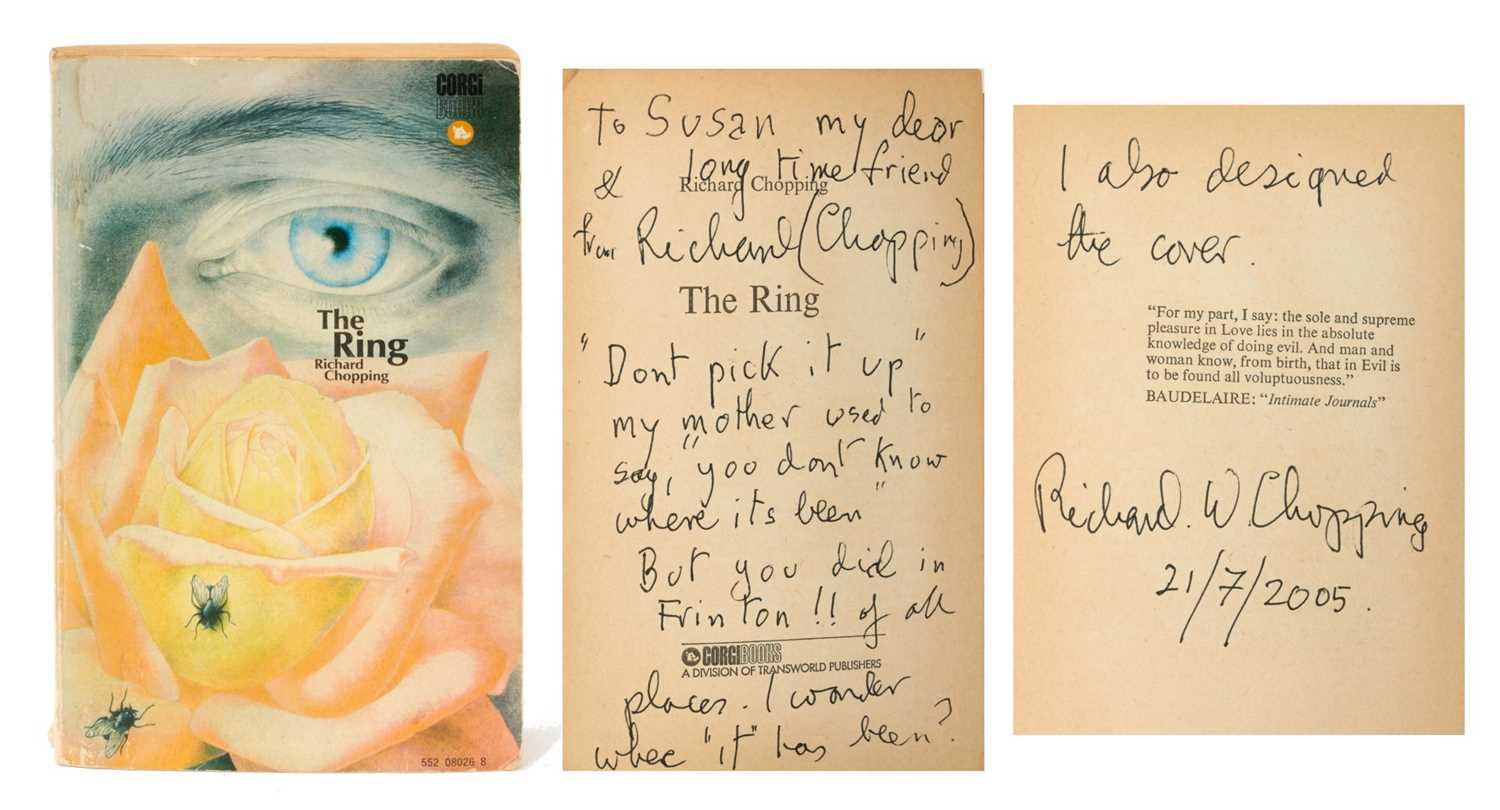 CORGI
BOOKS
The
Ring
Richard
Chopping
552 08026 8
To Susan my dear
& long time friend
Richard Chopping
from Richard (Chopping)
The Ring
"Dont pick it up"
my mother used to
say, "you dont know
where its been"
But you did in
Frinton!! of all
CORGIBOOKS
A DIVISION OF TRANSWORLD PUBLISHERS
places. I wonder
where "it" has been?
I also designed
the cover.
“For my part, I say: the sole and supreme
pleasure in Love lies in the absolute
knowledge of doing evil. And man and
woman know, from birth, that in Evil is
to be found all voluptuousness.”
BAUDELAIRE: “Intimate Journals”
Richard. W. Chopping
21/7/2005.